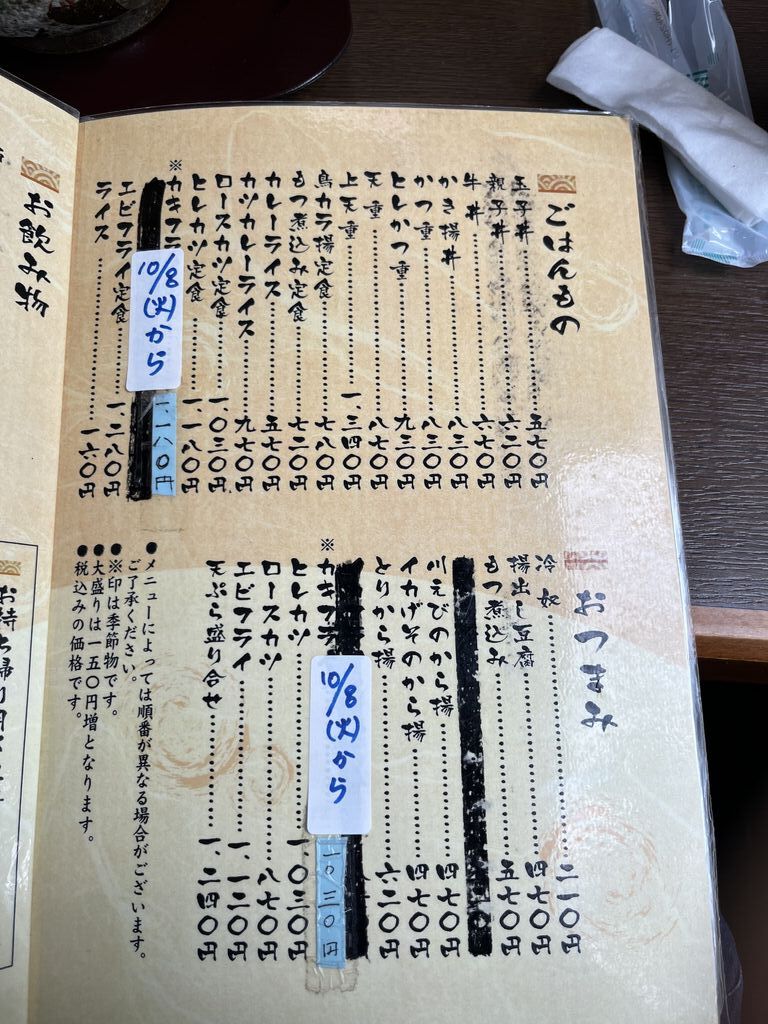 ごはんもの
玉子丼……五七〇円
親子丼……六二〇円
牛丼……六七〇円
かき揚丼……八三〇円
かつ重……八三〇円
ヒレかつ重……九三〇円
天重……八七〇円
上天重……一、三四〇円
鳥カラ揚定食……七八〇円
もつ煮込み定食……七二〇円
カレーライス……五七〇円
カツカレーライス……九七〇円
ロースカツ定食……一、〇三〇円
ヒレカツ定食……一、一八〇円
※カキフラ
10/8(火)から
一、一八〇円
エビフライ定食……一、二八〇円
ライス……一六〇円
おつまみ
冷奴……二一〇円
揚出し豆腐……四七〇円
もつ煮込み……五七〇円
川えびのから揚……四七〇円
イカげそのから揚……四七〇円
とりから揚……六二〇円
※カキフラ
10/8(火)から
一〇三〇円
ヒレカツ……一、〇三〇円
ロースカツ……八七〇円
エビフライ……一、一二〇円
天ぷら盛り合せ……一、二四〇円
●メニューによっては順番が異なる場合がございます。
ご了承ください。
●※印は季節物です。
●大盛りは一五〇円増となります。
●税込みの価格です。
お飲み物
お持ち帰り用